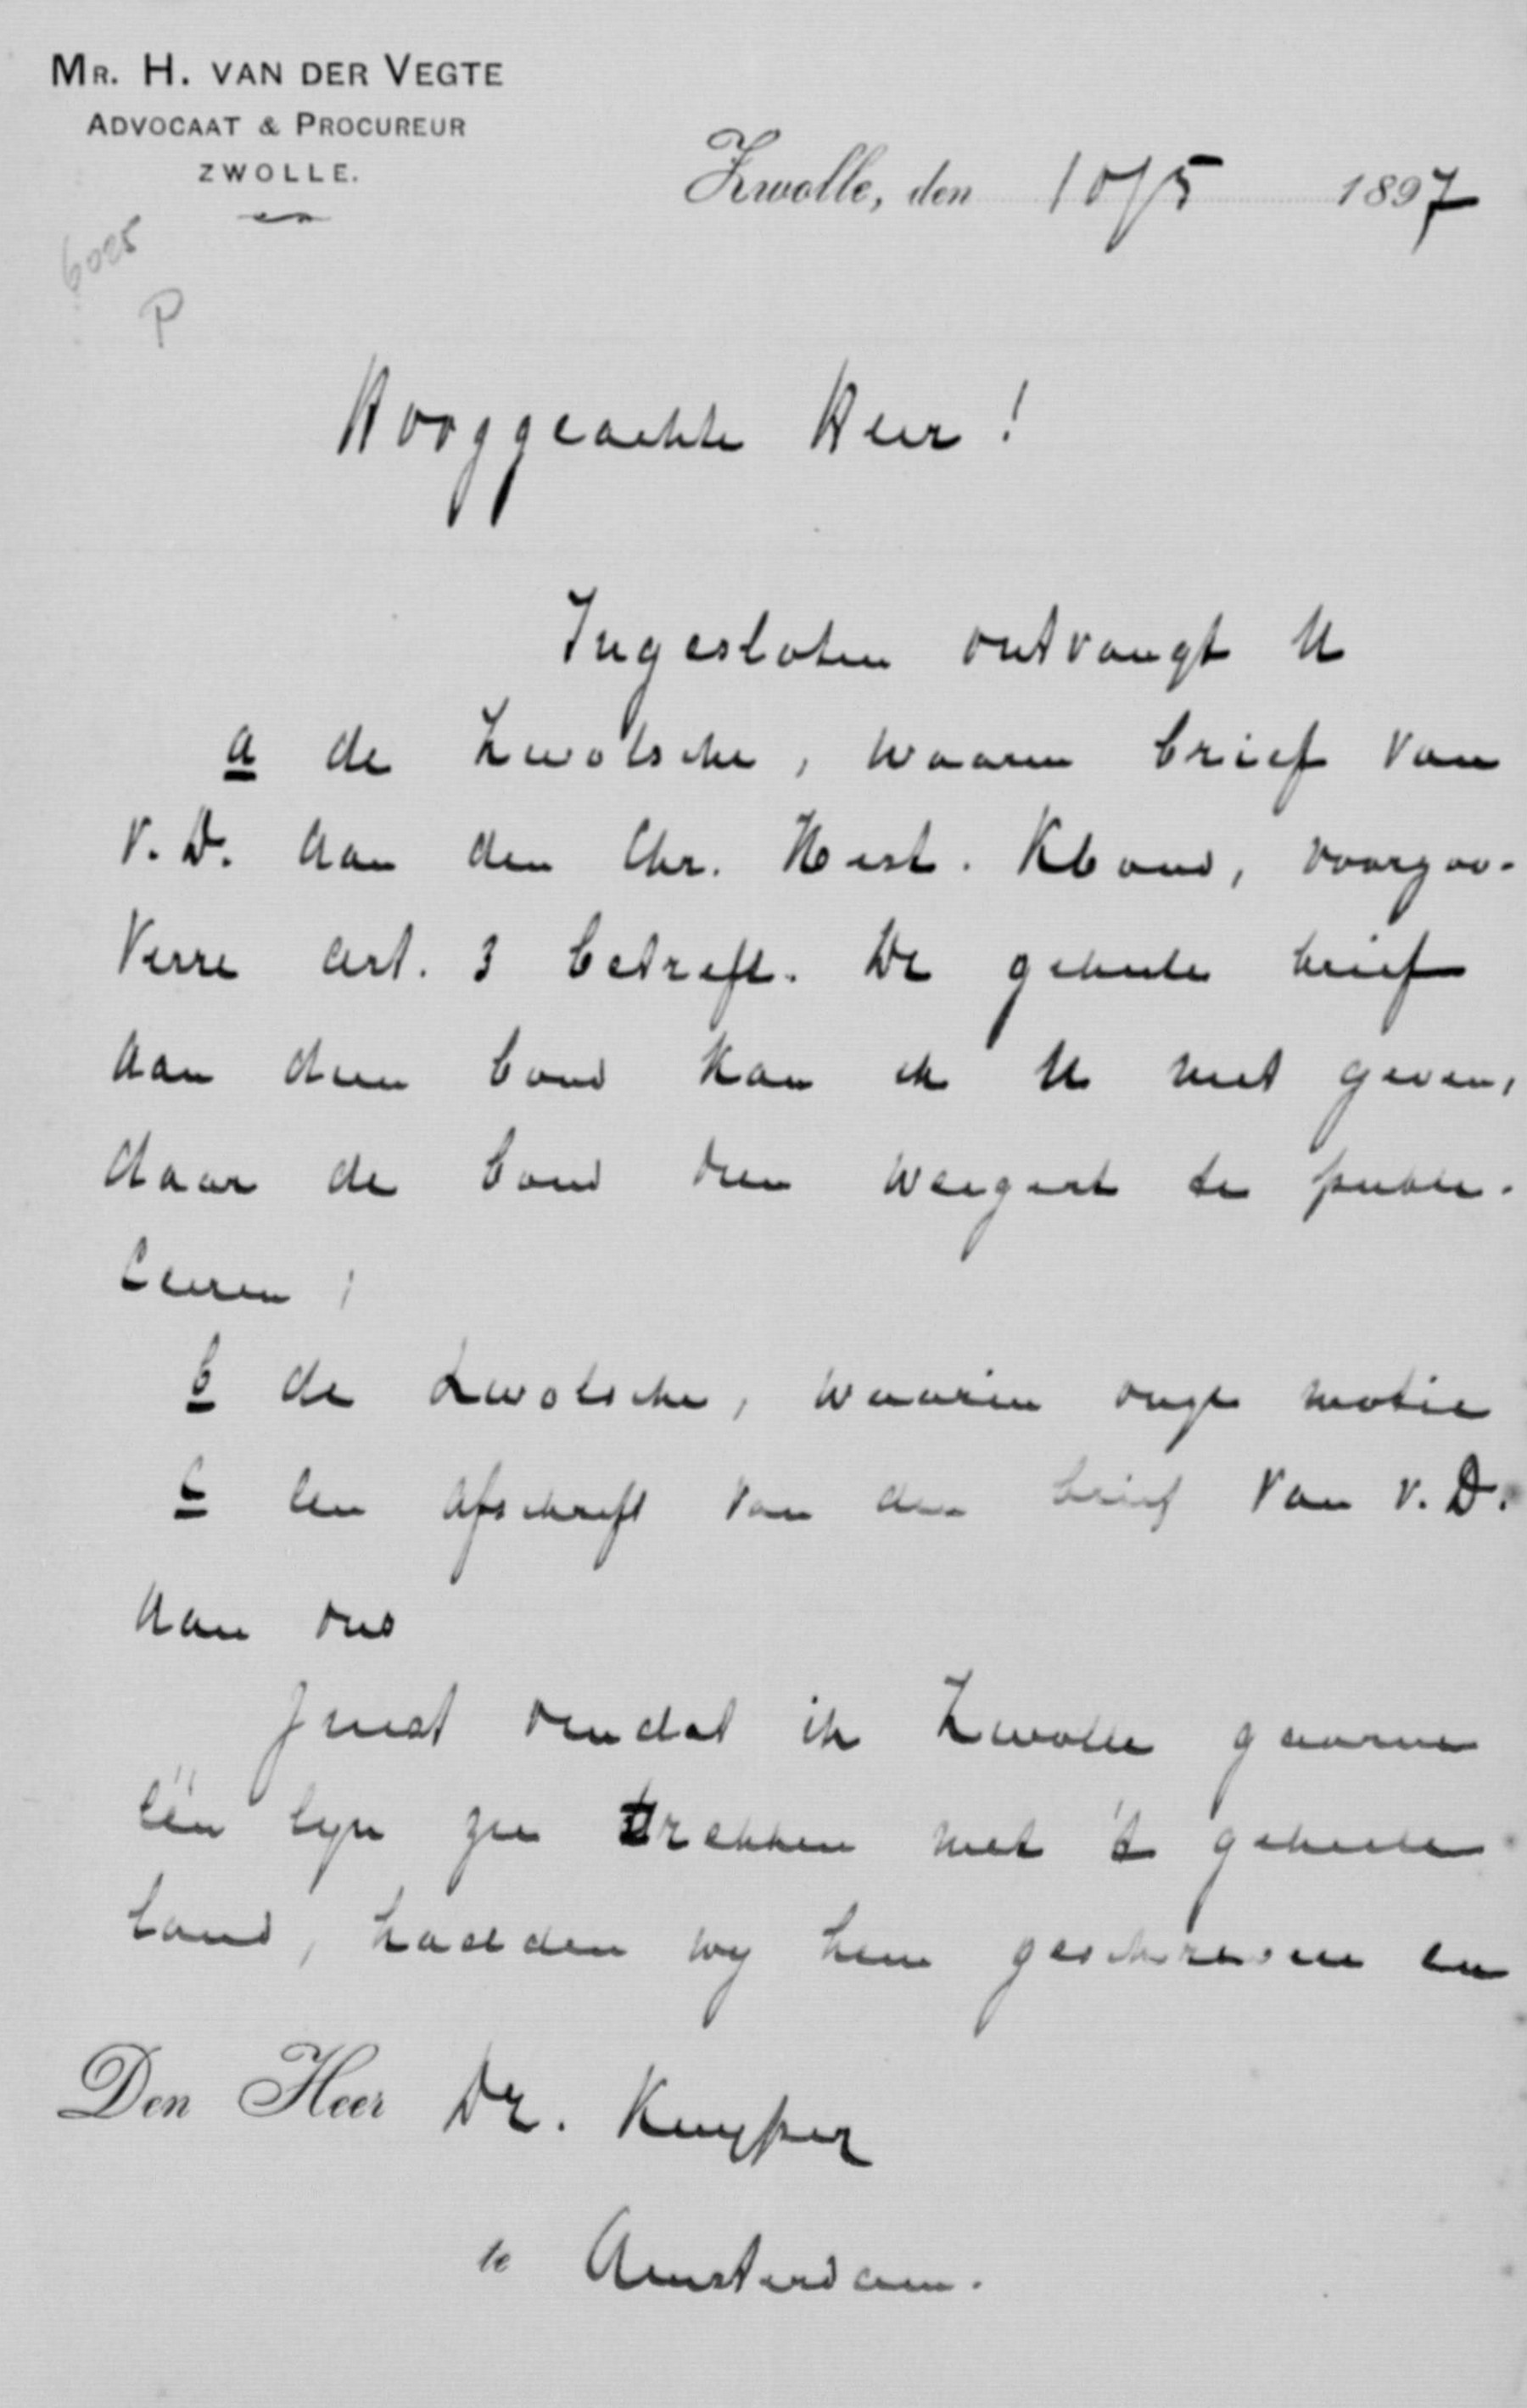 MR. H. VAN DER VEGTE
ADVOCAAT & PROCUREUR
ZWOLLE.
Zwolle, den 10/5 1897
6025
P
Hooggeachte Heer!
Ingesloten ontvangt U
a de Zwolsche, waarin brief van
v. D. aan den Chr. Hist. Kbond, voorzoo-
verre art. 3 betreft. De geheele brief
aan dien bond kan ik U niet geven,
daar de bond dien weigert te publi-
ceeren;
b de Zwolsche, waarin onze motie
c een afschrift van den brief van v. D.
aan ons
Juist omdat ik Zwolle gaarne
één lijn zie trekken met 't geheele
land, hadden wij hem geschreven en
Den Heer Dr. Kuyper
te Amsterdam.